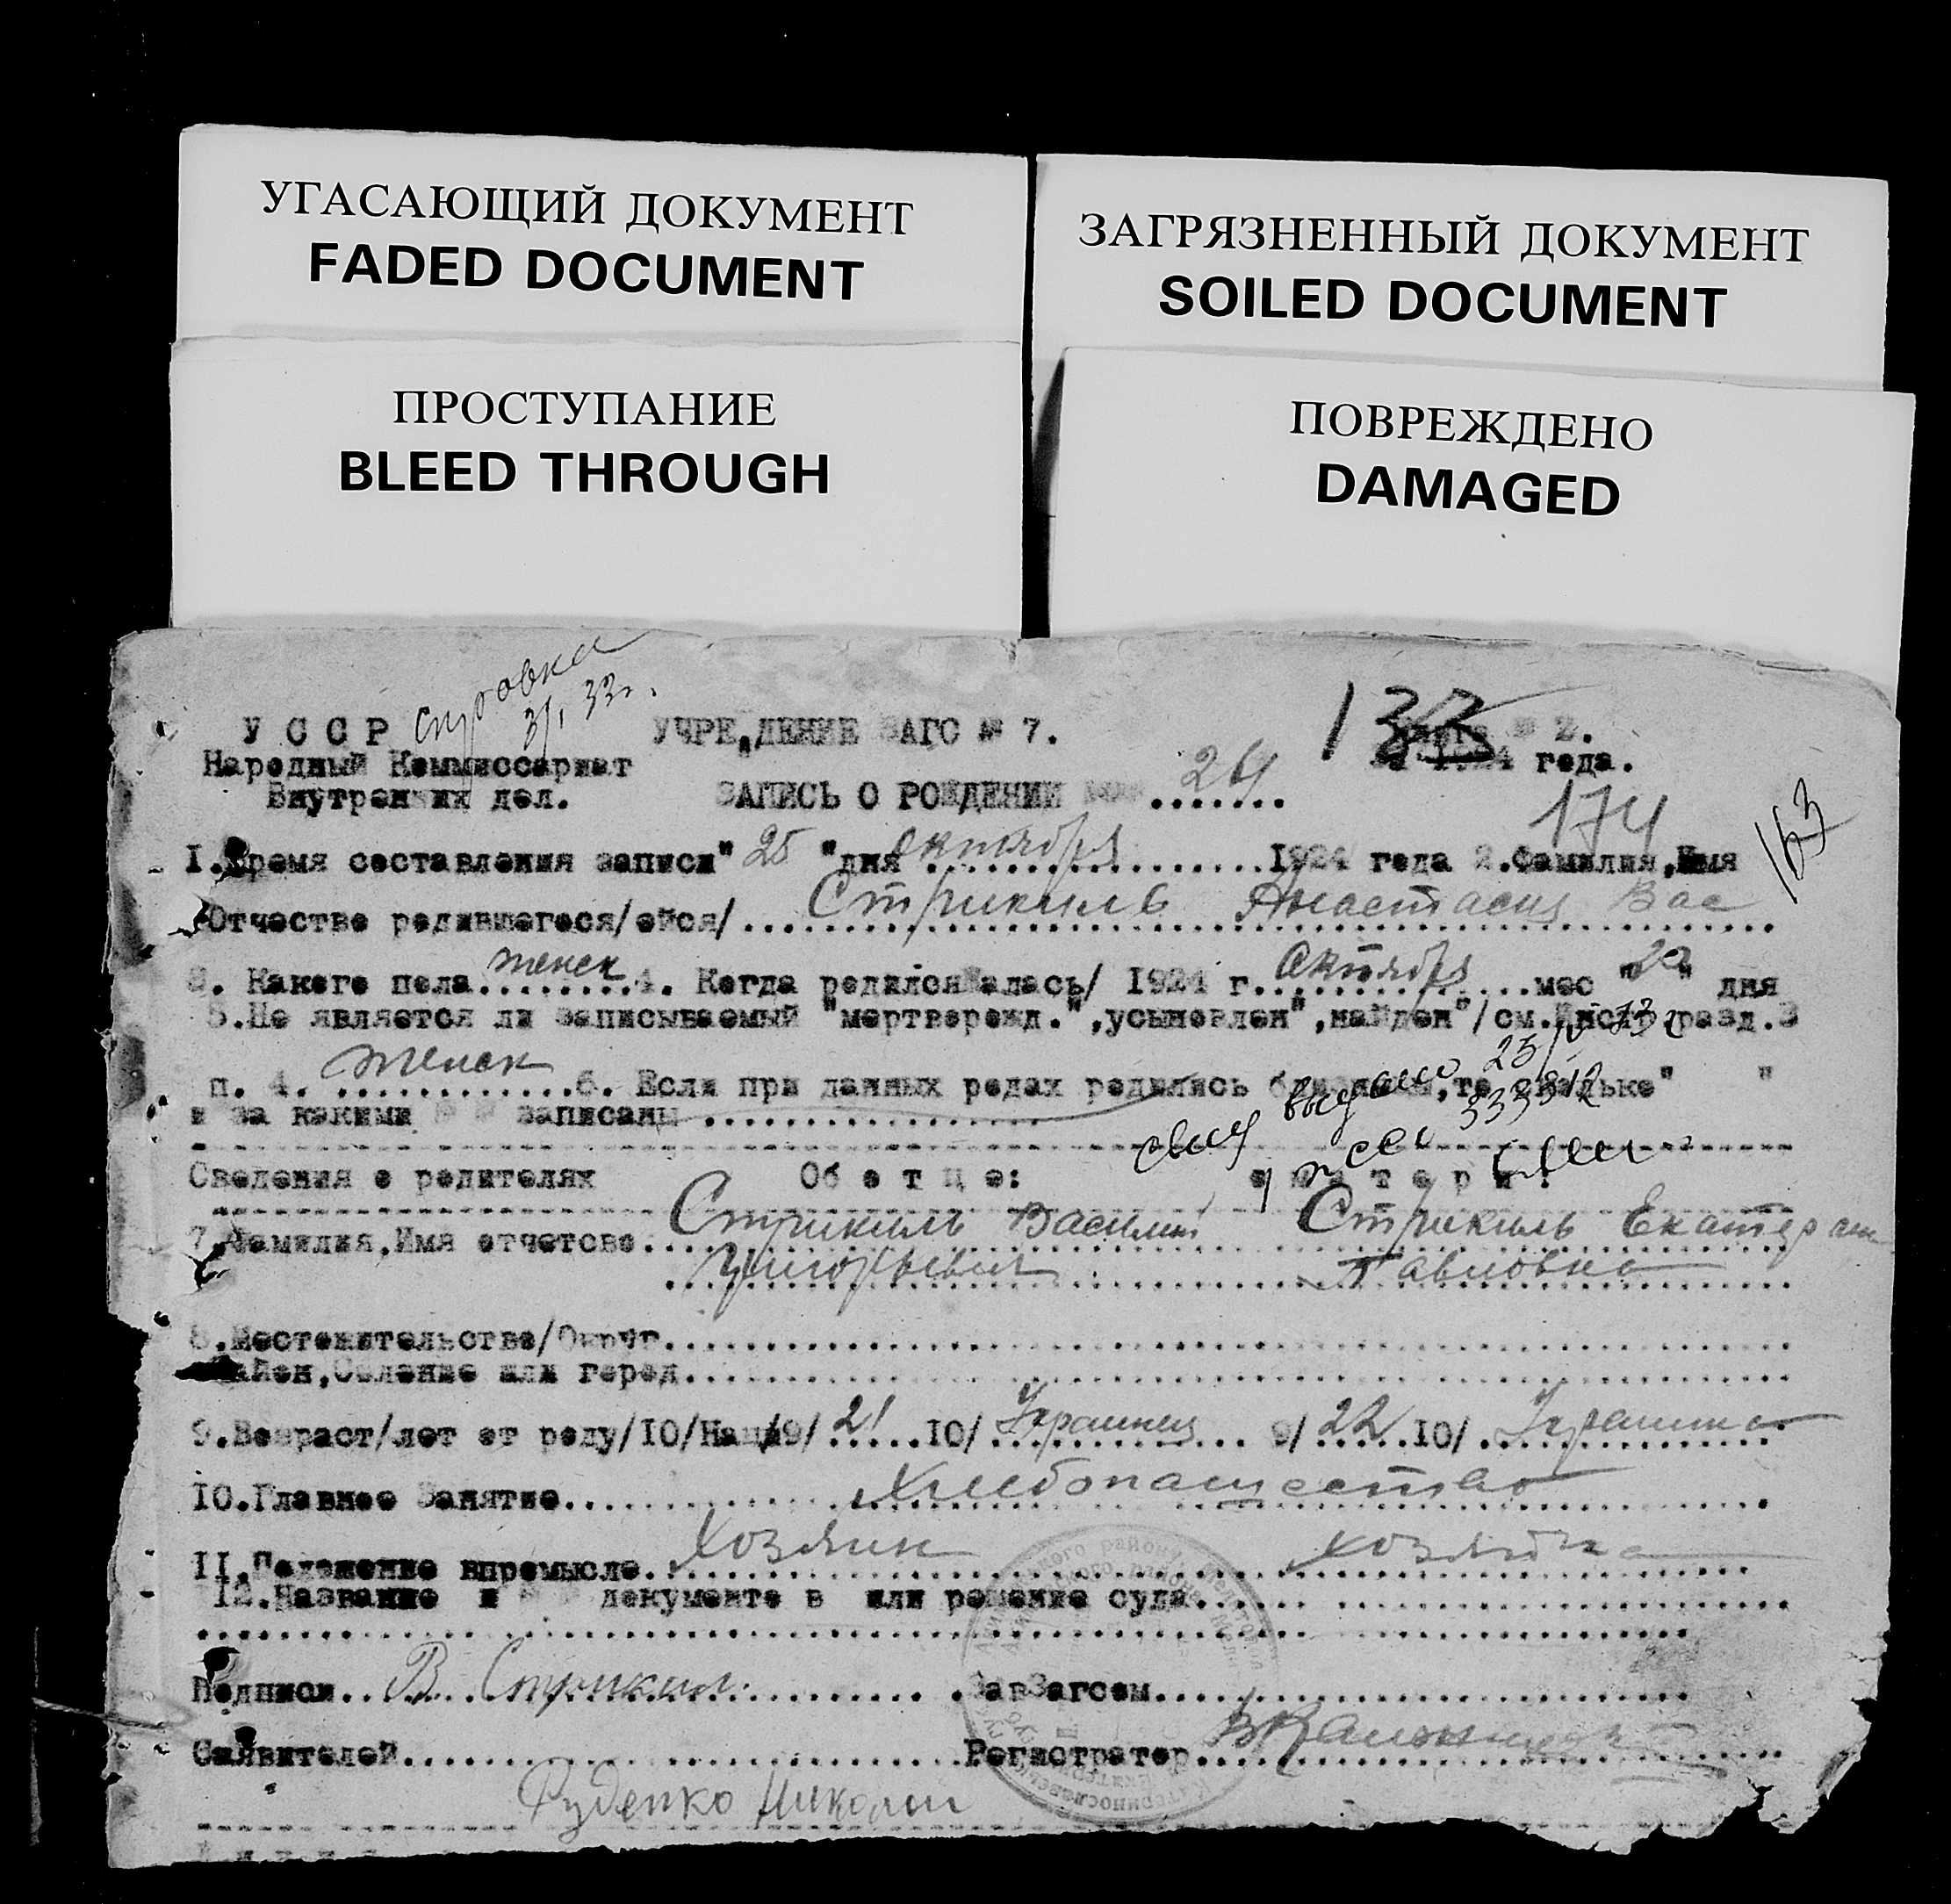 УГАСАЮЩИЙ ДОКУМЕНТ
FADED DOCUMENT
ЗАГРЯЗНЕННЫЙ ДОКУМЕНТ
SOILED DOCUMENT
ПРОСТУПАНИЕ
BLEED THROUGH
ПОВРЕЖДЕНО
DAMAGED
справка
3/I 33г.
133
У С С Р УЧРЕЖДЕНИЕ ЗАГС № 7. № 2.
Народный Коммиссариат 1924 года.
Внутренних дел. ЗАПИСЬ О РОЖДЕНИИ ....... 264
174
163
I.Время составления записи" 25 "дня октября 1924 года 2.Фамилия,Имя
Отчество родившегося/ейся/ Стрикиль Анастасия Вас
3. Какого пола женск 4. Когда родился/алась/ 1924 г. Октября мес " 20 " дня
5.Не является ли записываемый "мертворожд.",усыновлен",найден"/см.Инстр.разд.3
п. 4. женск 6. Если при данных родах родились близнецы,то сколько" "
и за какими записаны
выдано
Сведения о родителях Об о т ц е: о м а т е р и:
7.Фамилия,Имя отчетсво Стрикиль Василий Стрикиль Екатерин
Григорьевич Павловна
8.Местожительство/Округ
Район,Селение или город
9.Возраст/лет от роду/10/Нац/9/ 21 10/ Украинец 9/ 22 10/ Украинка
10.Главное Занятие Хлебопашество
11.Положение впромысле Хозяин хозяйка
12.Название и документов или решение суда
Подписи В. Стрикиль ЗавЗагсом
Заявителей Регистратор
Руденко Николай